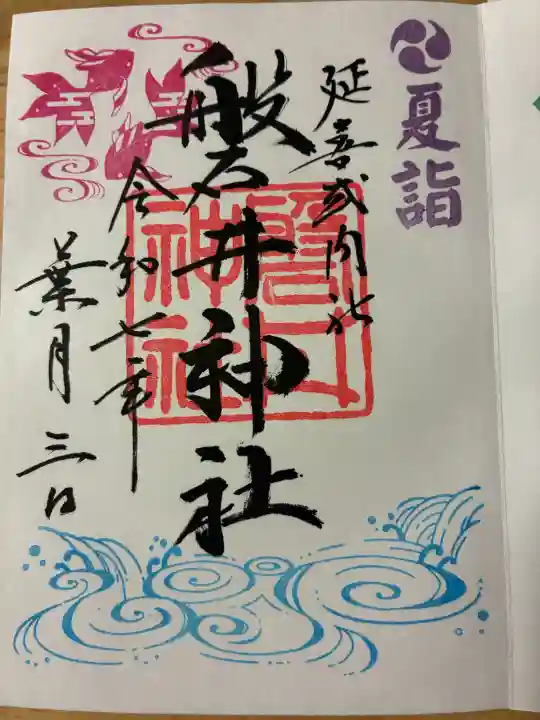 夏詣
延喜式内社
磐井神社
令和七年
葉月三日
磐井神社